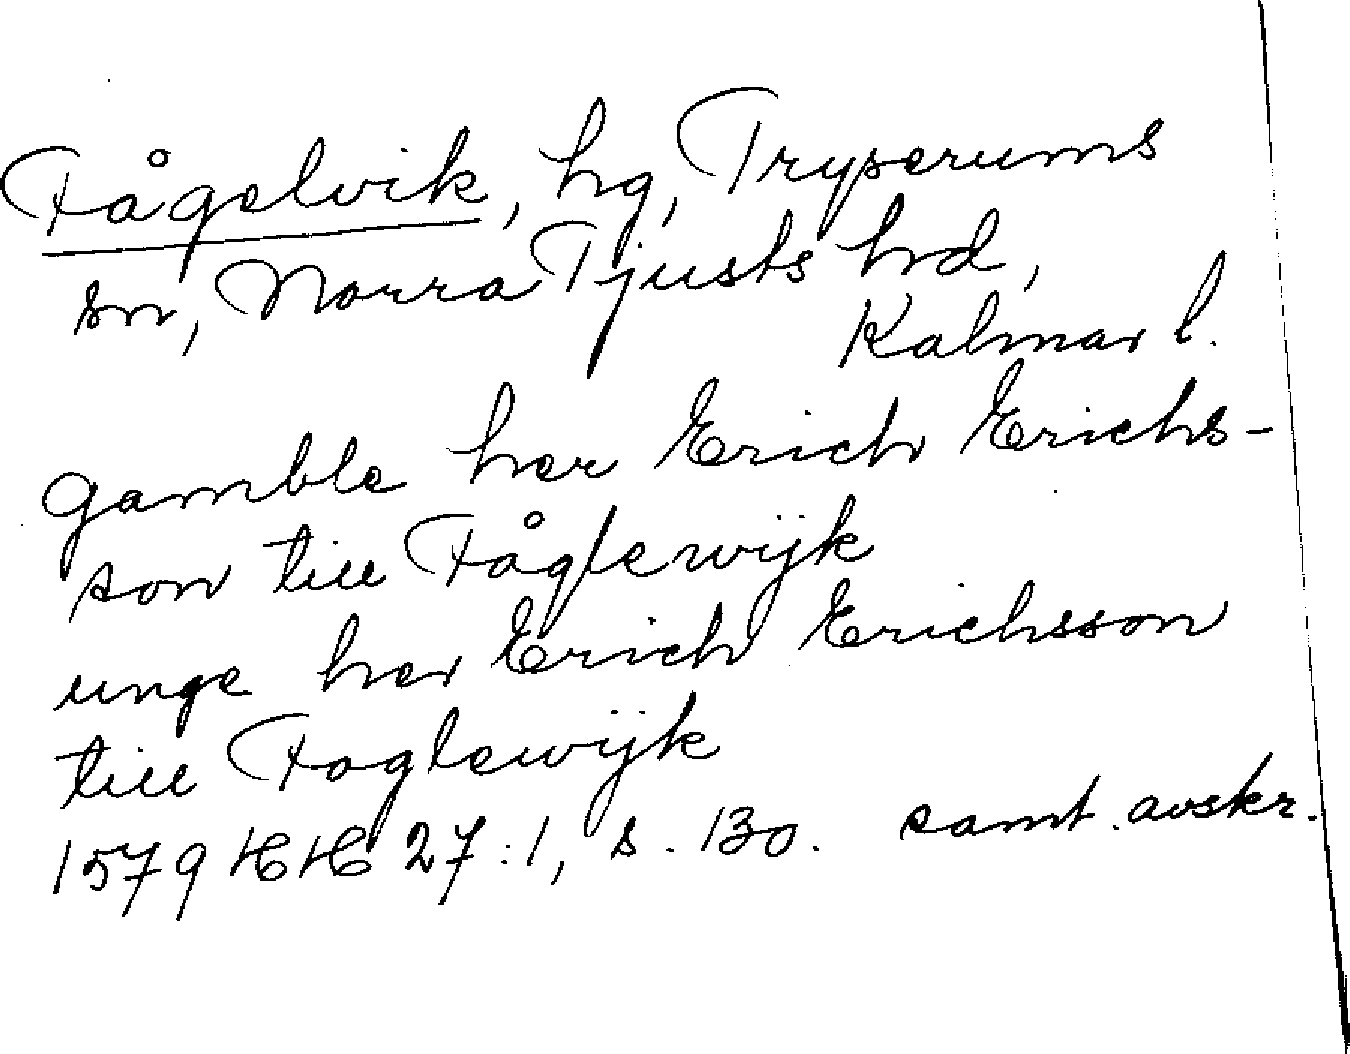 Fågelvik, hg, Tryserums
sn, Norra Tjusts hd,
Kalmar l.
gamble her Erich Erichs-
son till Fåglewijk
unge her Erich Erichsson
till Foglewijk
1579 HH 27:1, s. 130. samt. avskr.